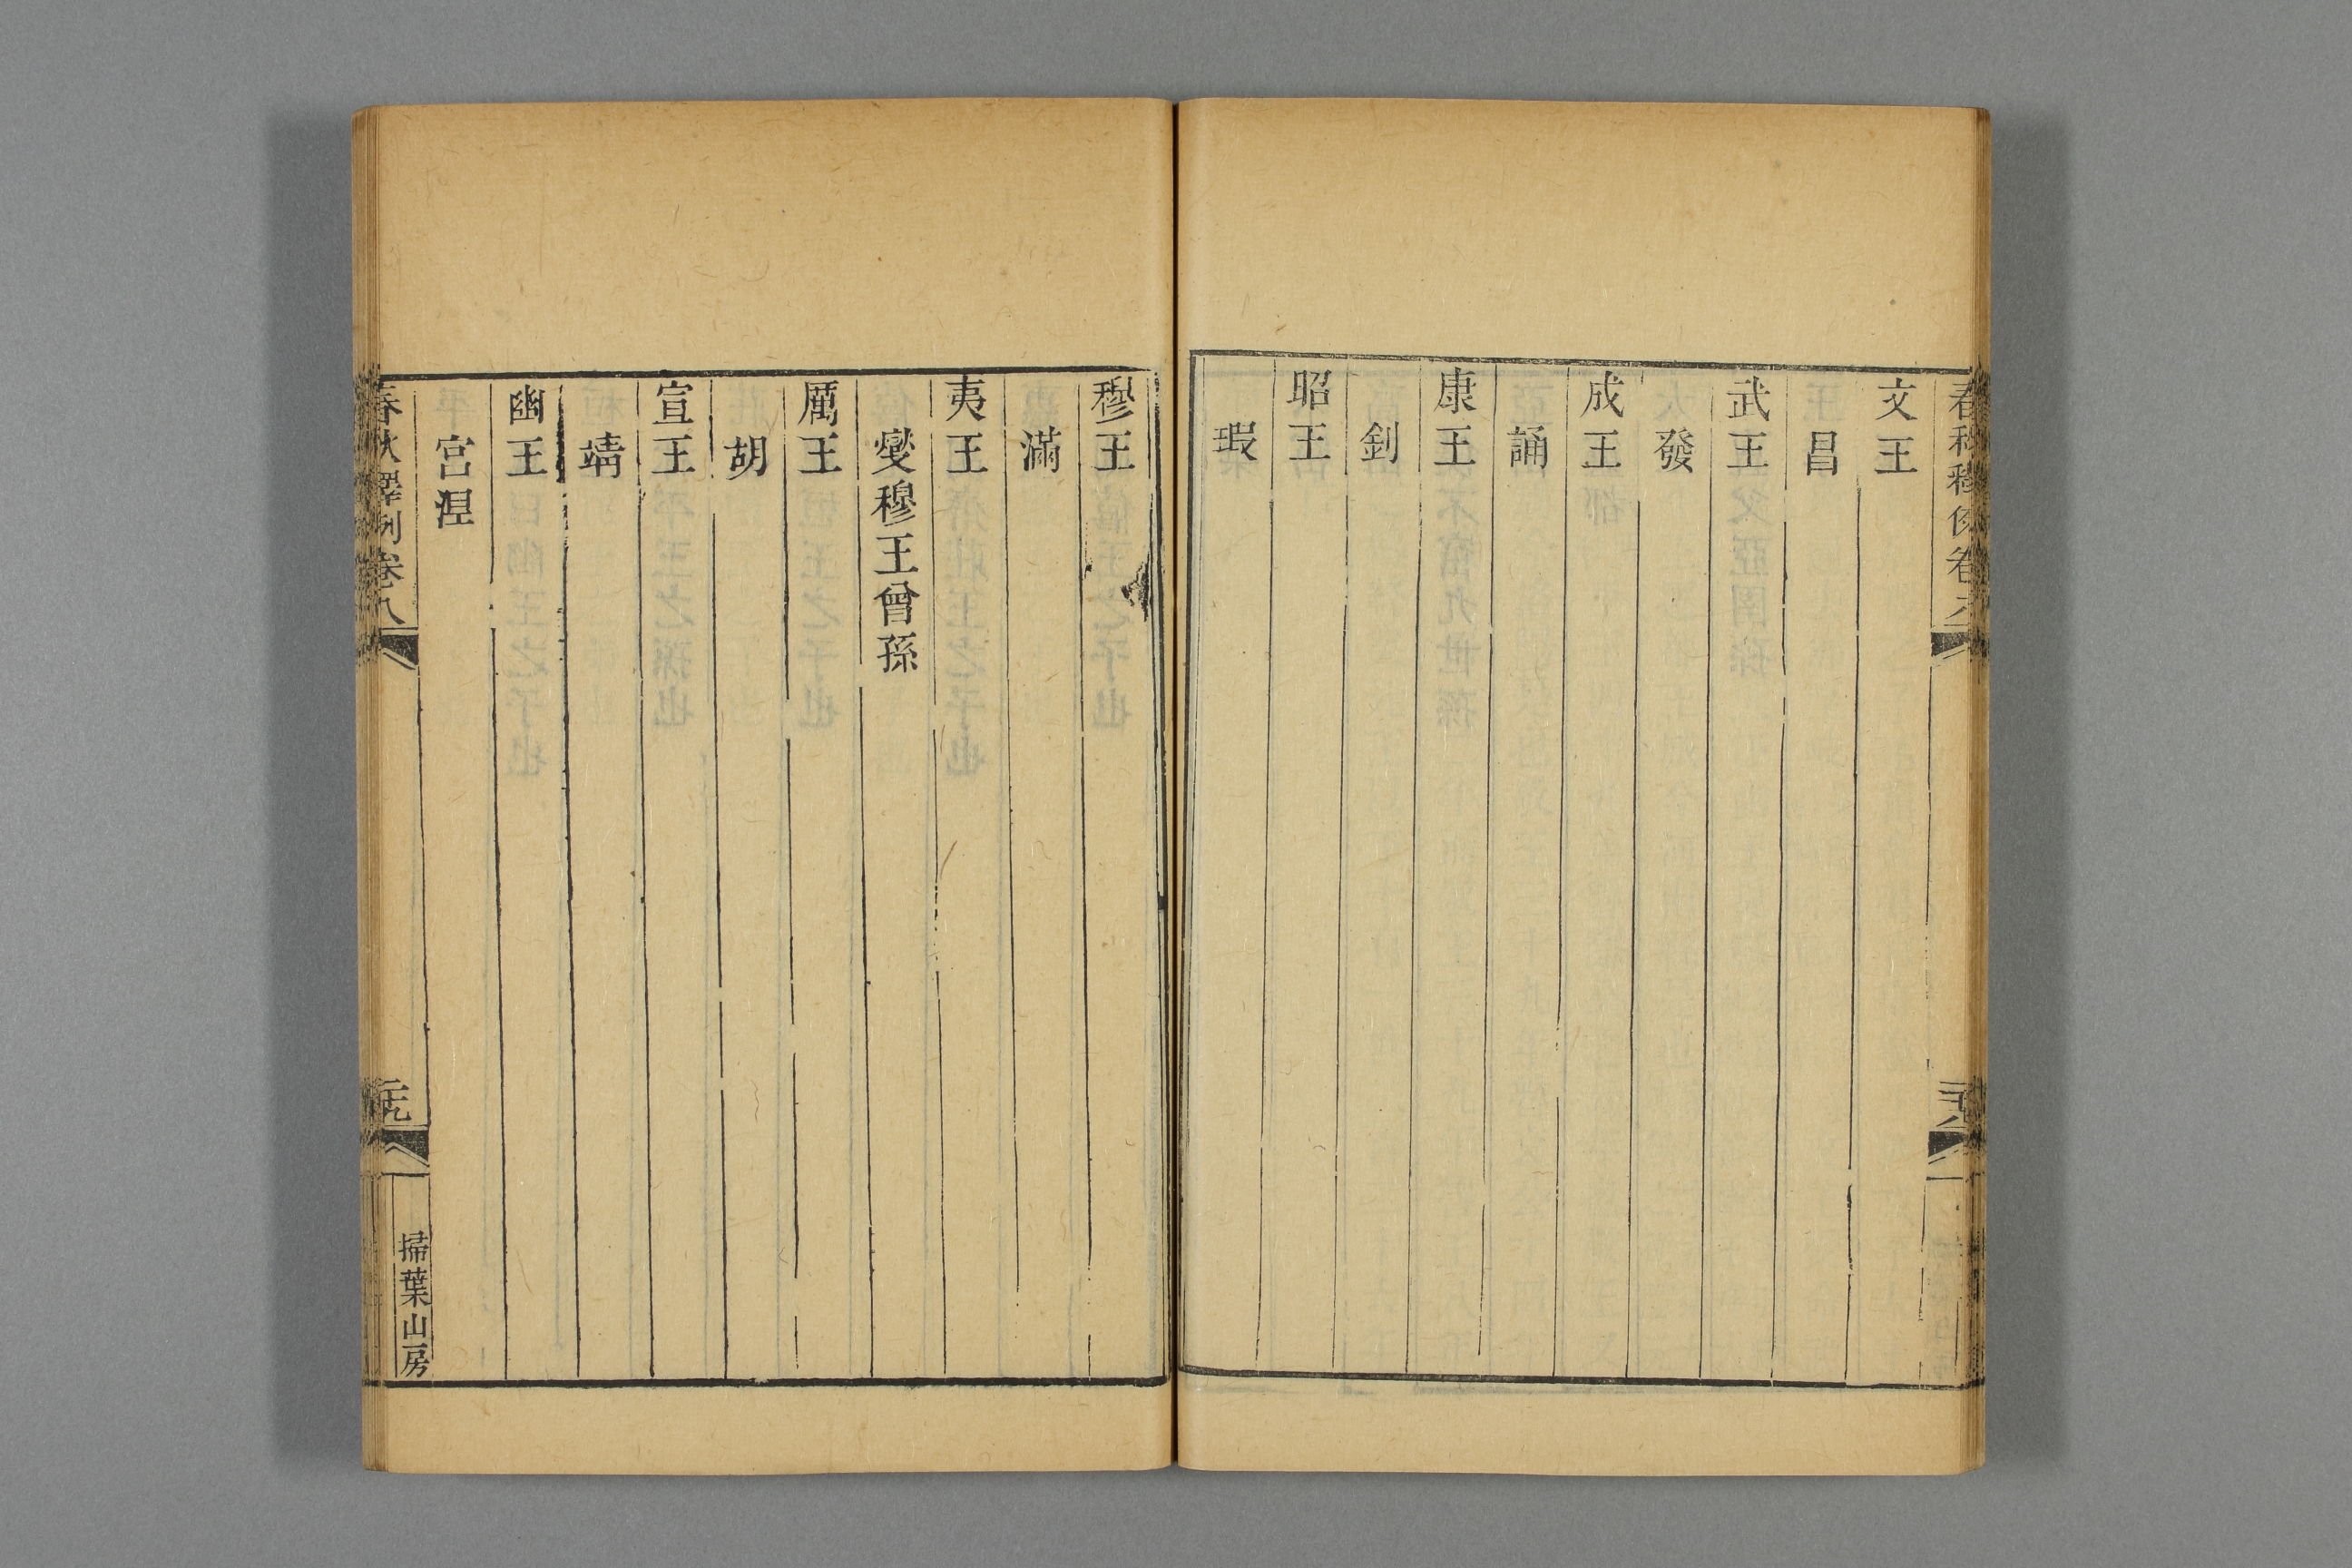 春秋釋例卷八
文王
昌
武王
發
成王
誦
康王
釗
昭王
瑕
穆王
滿
夷王
燮穆王曾孫
厲王
胡
宣王
靖
幽王
宮湼
春秋釋例卷八
二十九
掃葉山房